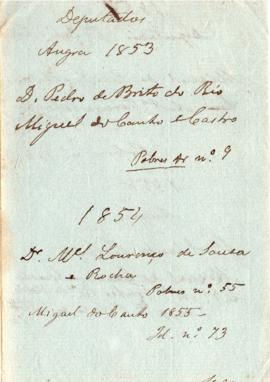 Deputados
Angra 1853
D. Pedro de Brito do Rio
Miguel do Canto e Castro
Pobres nº 9
1854
Dr. Mel. Lourenço de Sousa
e Rocha
Pobres nº 55
Miguel do Canto 1855
Id. nº 73